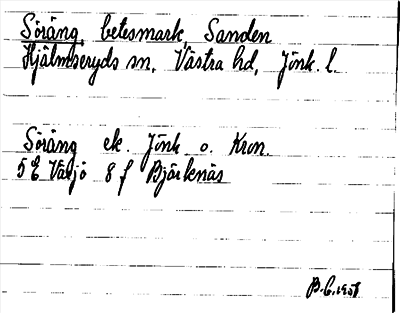 Söräng, betesmark, Sanden
Hjälmseryds sn, Västra hd, Jönk. l.
Söräng ek. Jönk o. Kron.
5 E Växjö 8 f Bjärkenäs
B.C. 1958